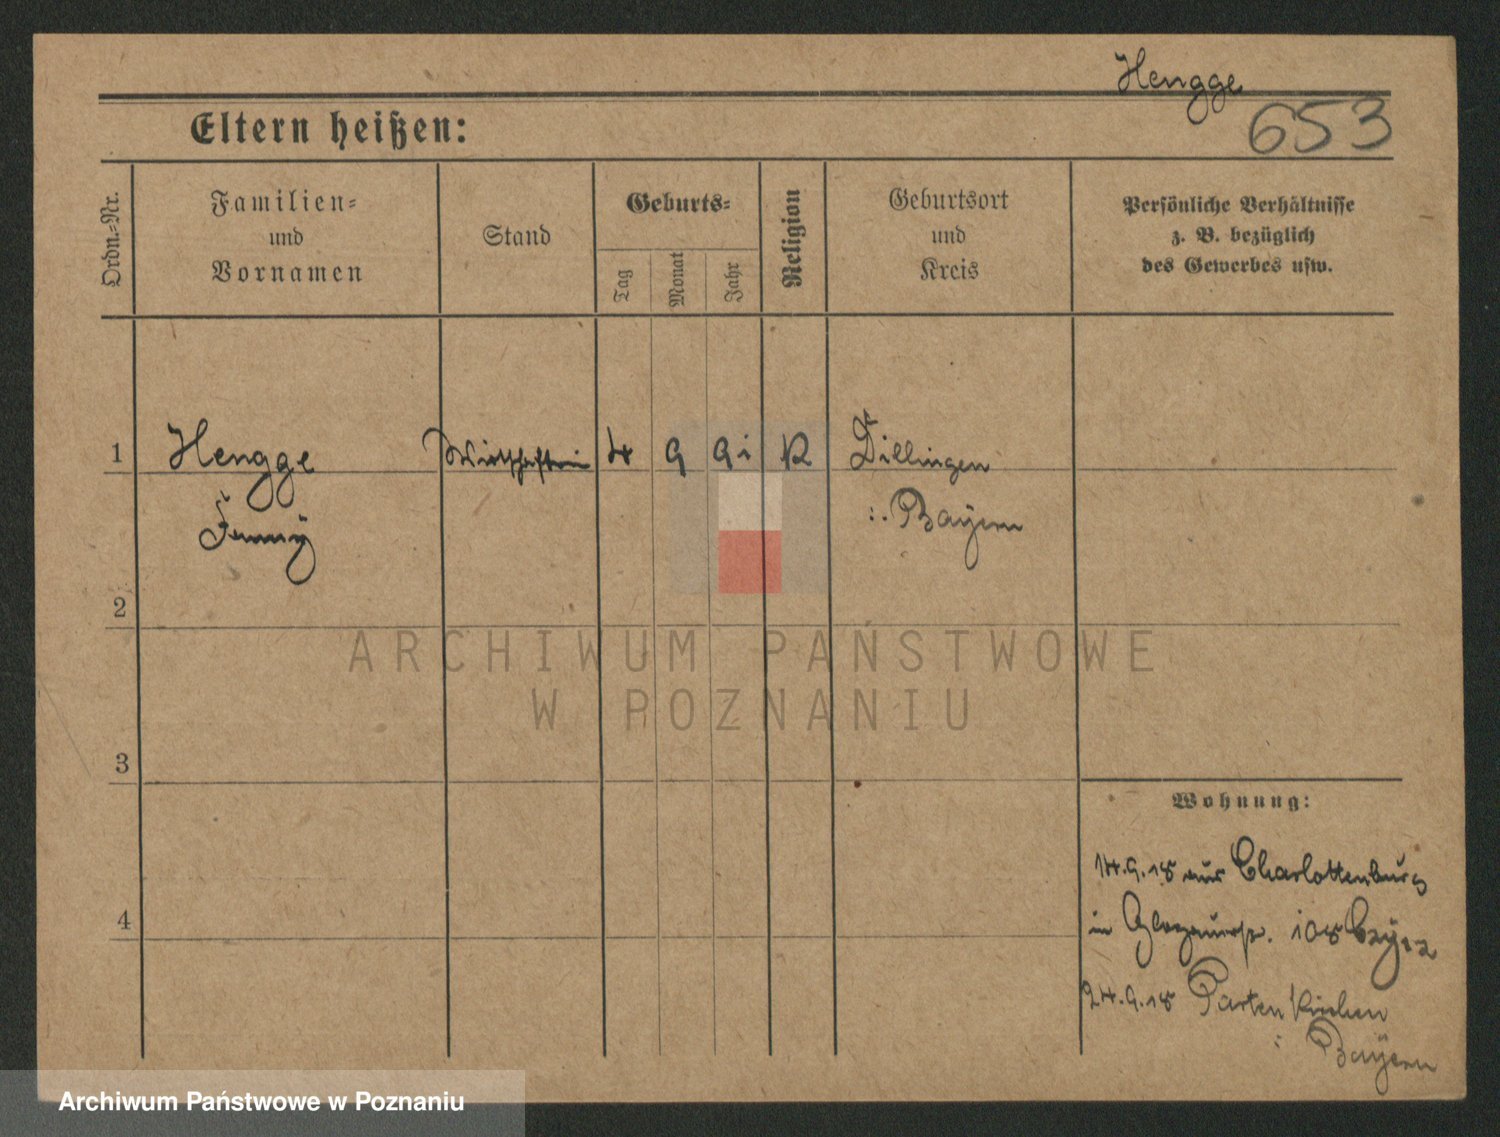 Hengge
653
Eltern heißen:
Ordn.-Nr.
Familien-
und
Vornamen
Stand
Geburts-
Tag
Monat
Jahr
Religion
Geburtsort
und
Kreis
Persönliche Verhältnisse
z. B. bezüglich
des Gewerbes usw.
1 Hengge 4 9 91 R Dillingen
Fanny
Bayern
2
ARCHIWUM PAŃSTWOWE
W POZNANIU
3
Wohnung:
14.9.18 aus Charlottenburg
4
in 108
24.9.18 Partenkirchen
Bayern
Archiwum Państwowe w Poznaniu